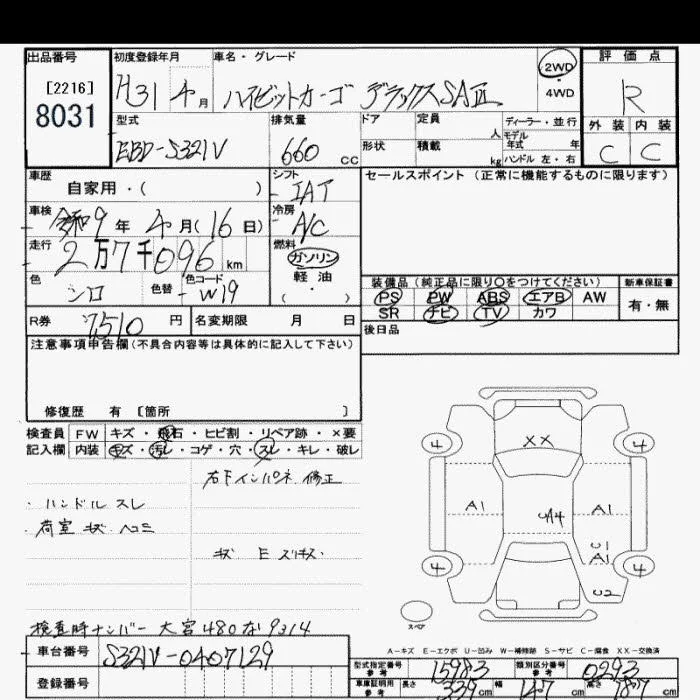 出品番号 初度登録年月 車名・グレード 2WD 評価点
[2216] H31 4月 ハイゼットカーゴ デラックスSAⅢ ・ 4WD R
8031 型式 排気量 ドア 定員 人 ディーラー・並行 外装 内装
EBD-S321V 660cc 形状 積載 kg モデル年式 年 ハンドル 左・右 C C
車歴 シフト セールスポイント (正常に機能するものに限ります)
自家用・( ) IAT
車検 令和9年4月(16日) 冷房 A/C
走行 2万7千096km 燃料 ガソリン
色 シロ 色替 色コード W19 軽油 ・( )
装備品(純正品に限り○をつけてください) 新車保証書
PS PW ABS エアB AW 有・無
SR ナビ TV カワ
R券 7510円 名変期限 月 日 後日品
注意事項申告欄(不具合内容等は具体的に記入して下さい)
修復歴 有 [箇所 ]
検査員 FW キズ・飛石・ヒビ割・リペア跡・×要
記入欄 内装 キズ・汚レ・コゲ・穴・スレ・キレ・破レ
右Fインパネ 修正
・ハンドル スレ
・荷室 キズ ヘコミ
キズ E スリキズ
XX
4 4
A1 A1
UA4
U1
A1
4 4
U2
スペア
検査時ナンバー 大宮480な9314
A-キズ E-エクボ U-凹み W-補修跡 S-サビ C-腐食 XX-交換済
車台番号 S321V-0407129
型式指定番号 参考 15983 類別区分番号 参考 0293
登録番号
車庫証明用 参考 長さ 339cm 幅 147cm 高さ 187cm